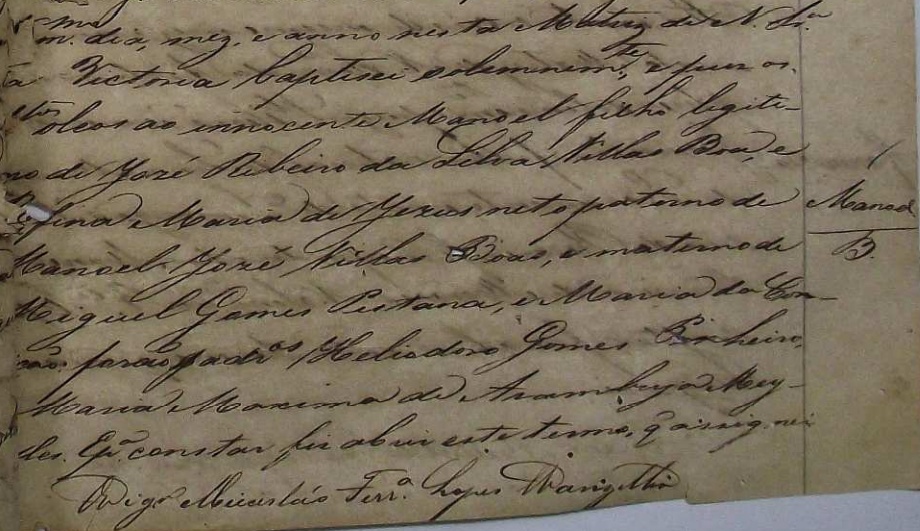 m.ᵐᵒ dia, mez, e anno nesta Matriz de N. Sr.ᵃ
da Victoria baptisei solemnem.ᵗᵉ, e puz os
S.ᵗᵒˢ oleos ao innocente Manoel filho legiti-
mo de José Ribeiro da Silva Villas Boas, e
fina Maria de Jezus neto paterno de
Manoel
B.
Manoel José Villas Boas, e materno de
Miguel Gomes Pestana, e Maria da Con-
ceição, forão padr.ᵒˢ Heliodoro Gomes Pinheiro,
Maria Maxima de Azambuja Mey-
les. E p.ᵃ constar fiz abrir este termo, q̃ assignei
Vigr.º Ferr.ᵃ Lopes